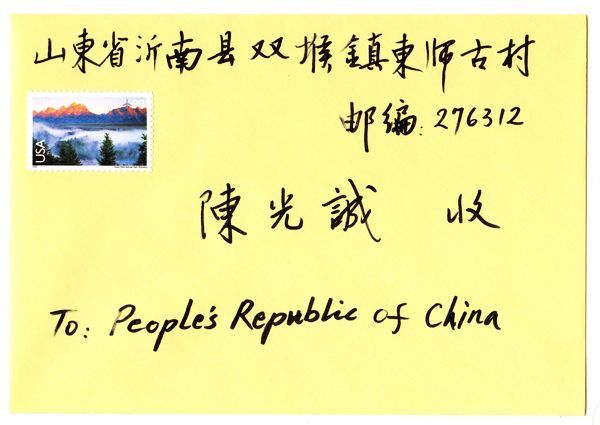 山東省沂南县双堠鎮東师古村
USA
邮编: 276312
陳光誠 收
To: People's Republic of China